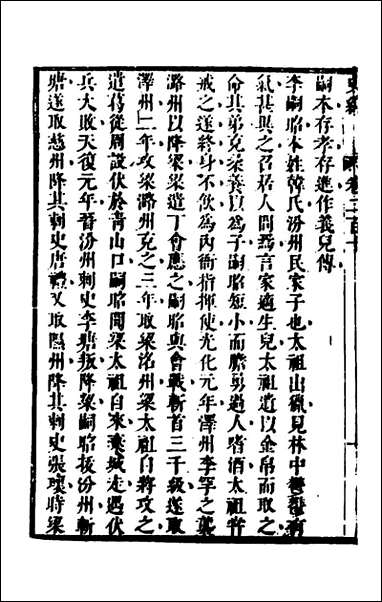 卷二百十
嗣本存孝存進作義兒傳
李嗣昭本姓韓氏汾州民家子也太祖出獵見林中鬱鬱有
氣甚異之召其人問焉言家適生兒太祖遺以金帛而取之
命其弟克柔養以爲子嗣昭短小而膽勇過人嗜酒太祖嘗
戒之遂終身不飲爲內衙指揮使光化元年澤州李罕之襲
潞州以降梁梁遣丁會應之嗣昭與會戰斬首三千級遂取
澤州二年攻梁潞州克之三年取梁洺州梁太祖自將攻之
遣葛從周設伏於靑山口嗣昭聞梁太祖自來棄城走遇伏
兵大敗天復元年晉汾州刺史李瑭叛降梁嗣昭復汾州斬
瑭遂取慈州降其刺史唐禮又取隰州降其刺史張瓌時梁